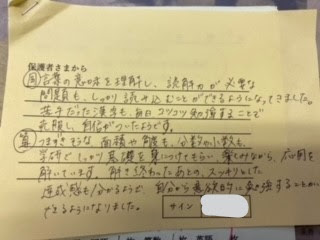 保護者さまから
国 言葉の意味を理解し、読解力が必要な
問題も、しっかり読み込むことができるようになってきました。
苦手だった漢字も、毎日コツコツ勉強することで
克服し、自信がついたようです。
算 つまずきそうな面積や角度も、分数や小数も、
学研でしっかり基礎を身につけてもらい、驚くながら、応用を
解いています。解き終わったあとの、スッキリとした
達成感も分かるようで、自分から意欲的に勉強することが
できるようになりました。
サイン